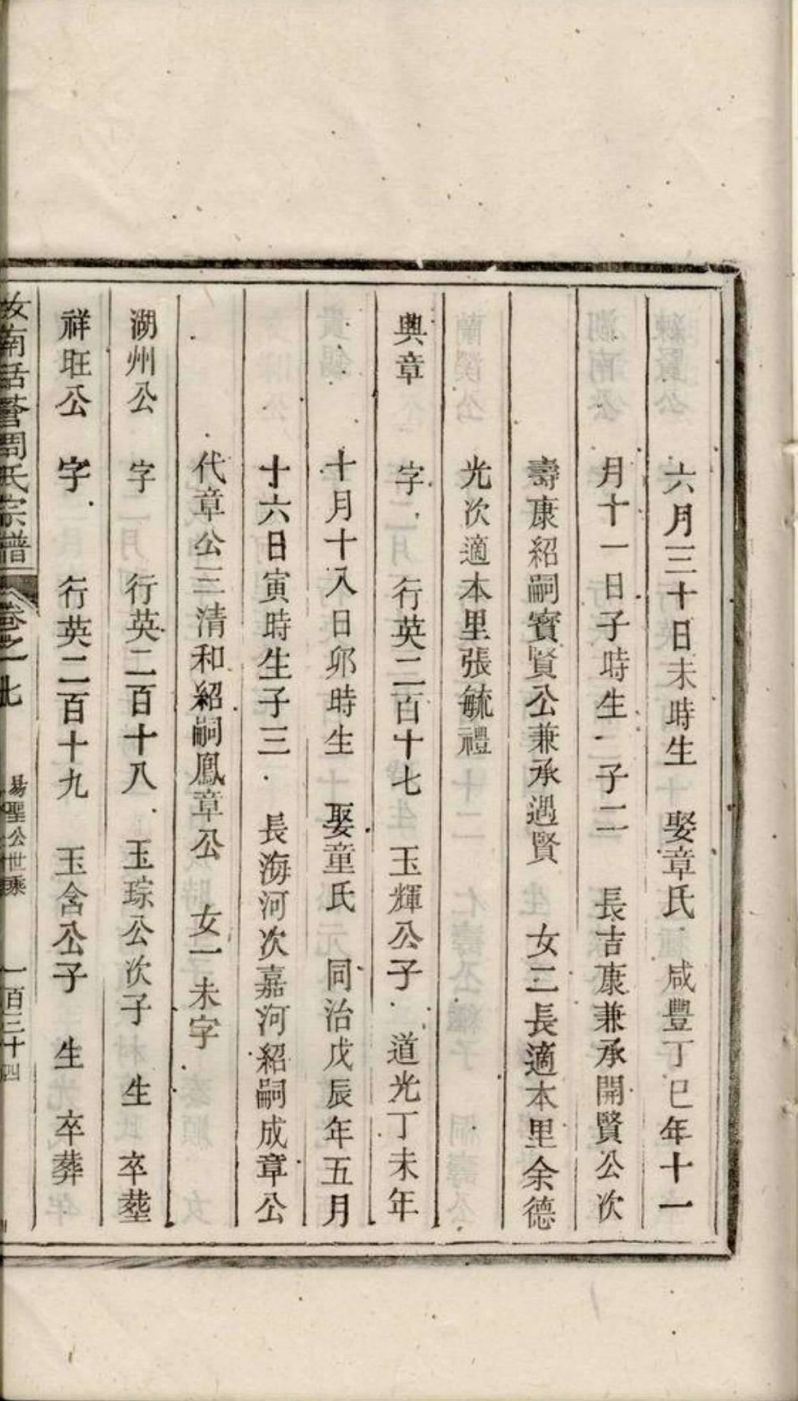 六月三十日未時生 娶章氏 咸豐丁巳年十一
月十一日子時生 子二 長吉康兼承開賢公次
壽康紹嗣賓賢公兼承遇賢 女二長適本里余德
光次適本里張毓禮
興章 字 行英二百十七 玉輝公子 道光丁未年
十月十八日卯時生 娶童氏 同治戊辰年五月
十六日寅時生子三 長海河次嘉河紹嗣成章公
代章公三清和紹嗣鳳章公 女一未字
湖州公 字 行英二百十八 玉琮公次子 生 卒塟
祥旺公 字 行英二百十九 玉含公子 生 卒葬
汝南周氏宗譜 卷之一七 易聖公世系 一百三十四